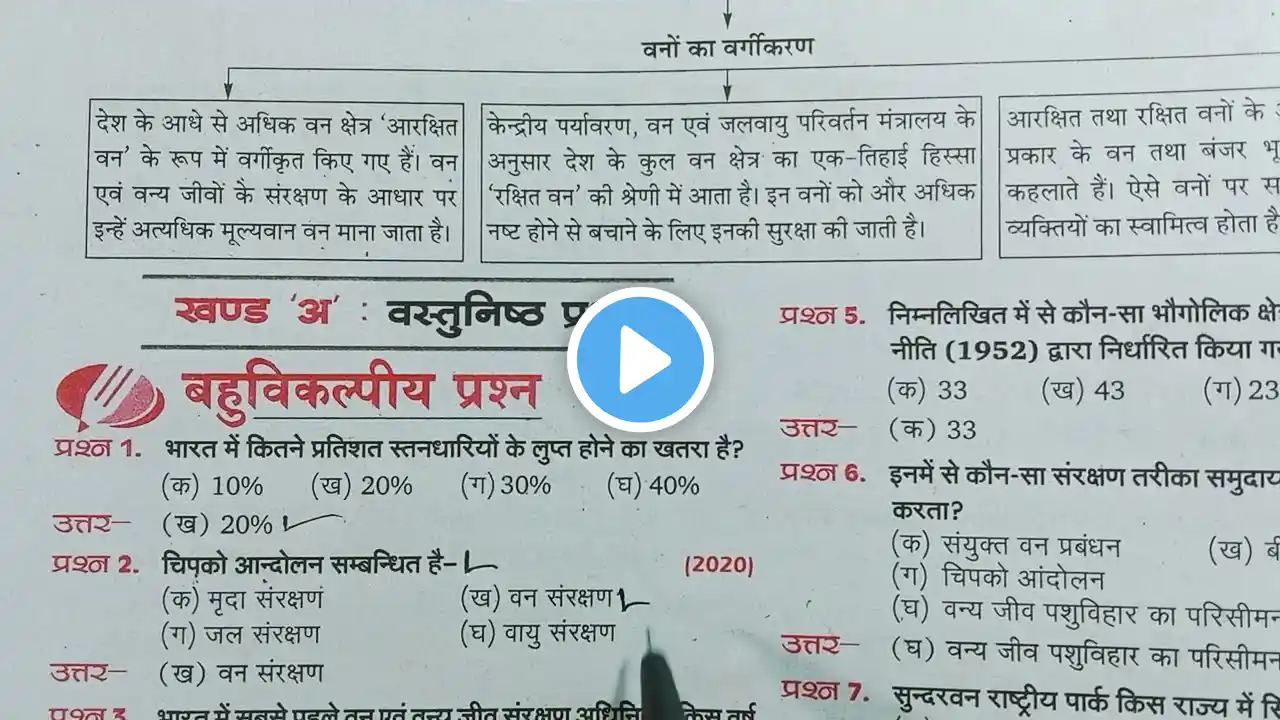 वनों का वर्गीकरण
देश के आधे से अधिक वन क्षेत्र 'आरक्षित
वन' के रूप में वर्गीकृत किए गए हैं। वन
एवं वन्य जीवों के संरक्षण के आधार पर
इन्हें अत्यधिक मूल्यवान वन माना जाता है।
केन्द्रीय पर्यावरण, वन एवं जलवायु परिवर्तन मंत्रालय के
अनुसार देश के कुल वन क्षेत्र का एक-तिहाई हिस्सा
'रक्षित वन' की श्रेणी में आता है। इन वनों को और अधिक
नष्ट होने से बचाने के लिए इनकी सुरक्षा की जाती है।
आरक्षित तथा रक्षित वनों के
प्रकार के वन तथा बंजर
कहलाते हैं। ऐसे वनों पर
व्यक्तियों का स्वामित्व होता है
खण्ड 'अ' : वस्तुनिष्ठ
बहुविकल्पीय प्रश्न
प्रश्न 1. भारत में कितने प्रतिशत स्तनधारियों के लुप्त होने का खतरा है?
(क) 10% (ख) 20% (ग) 30% (घ) 40%
उत्तर– (ख) 20%
प्रश्न 2. चिपको आन्दोलन सम्बन्धित है– (2020)
(क) मृदा संरक्षण (ख) वन संरक्षण
(ग) जल संरक्षण (घ) वायु संरक्षण
उत्तर– (ख) वन संरक्षण
प्रश्न 3. भारत में सबसे पहले वन एवं वन्य जीव संरक्षण किस वर्ष
प्रश्न 5. निम्नलिखित में से कौन-सा भौगोलिक
नीति (1952) द्वारा निर्धारित किया
(क) 33 (ख) 43 (ग) 23
उत्तर– (क) 33
प्रश्न 6. इनमें से कौन-सा संरक्षण तरीका
करता?
(क) संयुक्त वन प्रबंधन (ख)
(ग) चिपको आंदोलन
(घ) वन्य जीव पशुविहार का
उत्तर– (घ) वन्य जीव पशुविहार का
प्रश्न 7. सुन्दरवन राष्ट्रीय पार्क किस राज्य में